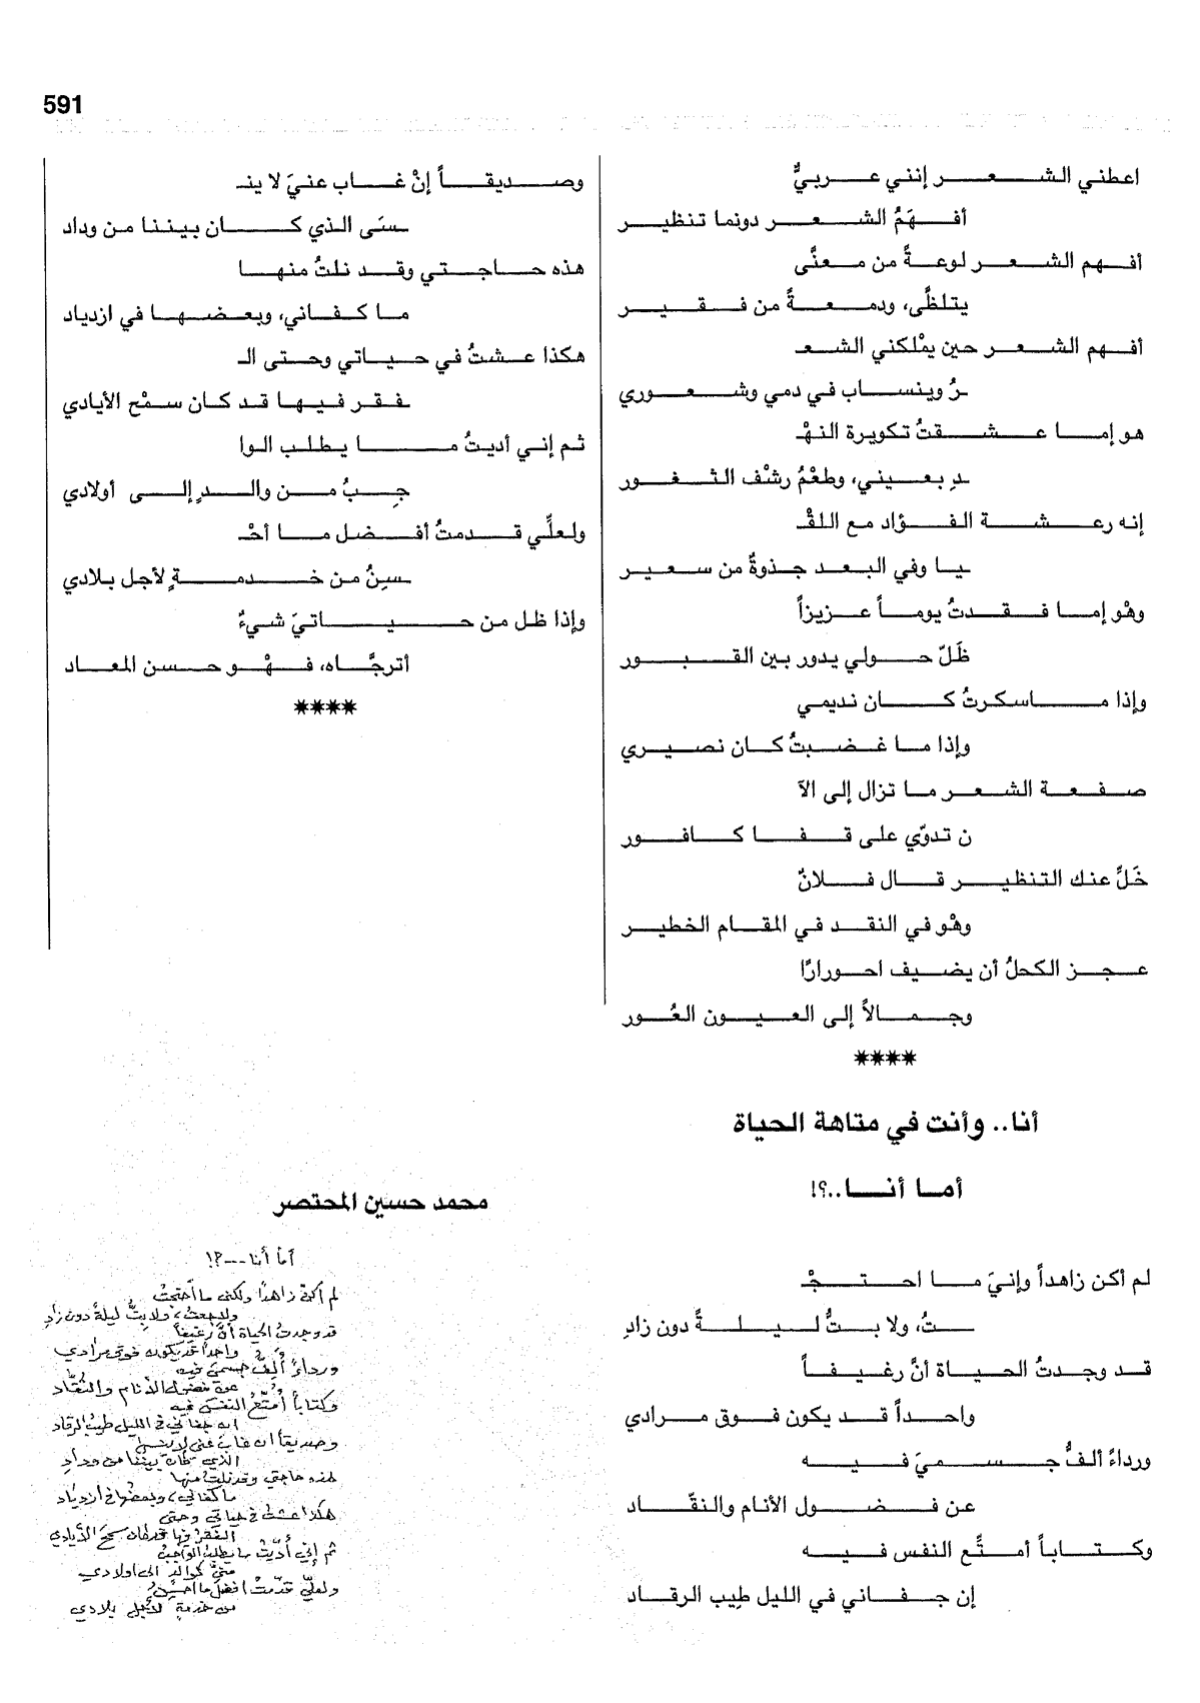 591
اعطني الشعر إنني عربيٌّ
أفهَمُ الشعر دونما تنظير
أفهم الشعر لوعةً من معنًّى
يتلظَّى، ودمعةً من فقير
أفهم الشعر حين يمْلكني الشعـ
ـرُ وينساب في دمي وشعوري
هو إما عشقتُ تكويرة النهْـ
ـدِ بعيني، وطعْمُ رشْف الثغور
إنه رعشة الفؤاد مع اللقْـ
ـيا وفي البعد جذوةٌ من سعير
وهْو إما فقدتُ يوماً عزيزاً
ظَلّ حولي يدور بين القبور
وإذا ما سكرتُ كان نديمي
وإذا ما غضبتُ كان نصيري
صفعة الشعر ما تزال إلى الآ
ن تدوّي على قفا كافور
خَلِّ عنك التنظير قال فلانٌ
وهْو في النقد في المقام الخطير
عجز الكحلُ أن يضيف احورارًا
وجمالاً إلى العيون العُور
****
أنا.. وأنت في متاهة الحياة
أما أنا..؟!
لم أكن زاهداً وإنيَ ما احتجْـ
ـتُ، ولا بتُّ ليلةً دون زادِ
قد وجدتُ الحياة أنَّ رغيفاً
واحداً قد يكون فوق مرادي
ورداءً ألفُّ جسميَ فيه
عن فضول الأنام والنقّاد
وكتاباً أمتِّع النفس فيه
إن جفاني في الليل طِيب الرقاد
وصديقاً إنْ غاب عنيَ لا ينـ
ـسَى الذي كان بيننا من وداد
هذه حاجتي وقد نلتُ منها
ما كفاني، وبعضها في ازدياد
هكذا عشتُ في حياتي وحتى الـ
ـفقر فيها قد كان سمْح الأيادي
ثم إني أديتُ ما يطلب الوا
جِبُ من والدٍ إلى أولادي
ولعلِّي قدمتُ أفضل ما أحْـ
ـسِنُ من خدمةٍ لأجل بلادي
وإذا ظل من حياتيَ شيءٌ
أترجَّاه، فهْو حسن المعاد
****
محمد حسين المحتصر
أما أنا---؟!
لم أكن زاهداً ولكني ما احتجتُ
ولا بتُّ ليلةً دون زادِ
قد وجدتُ الحياة أنَّ رغيفاً
واحداً قد يكون فوق مرادي
ورداءً ألفُّ جسميَ فيه
عن فضول الأنام والنُّقّاد
وكتاباً أمتّعُ النفس فيه
إن جفاني في الليل طيبُ الرقاد
وصديقاً إن غاب عني لا ينسى
الذي كان بيننا من ودادِ
هذه حاجتي وقد نلتُ منها
ما كفاني، وبعضها في ازدياد
هكذا عشتُ في حياتي وحتى
الفقرُ فيها قد كان سمحَ الأيادي
ثم إني أدّيتُ ما يطلبُ الواجبُ
كوالدٍ إلى أولادي
ولعلّي قدّمتُ أفضل ما أُحسِنُ
من خدمةٍ لأجل بلادي